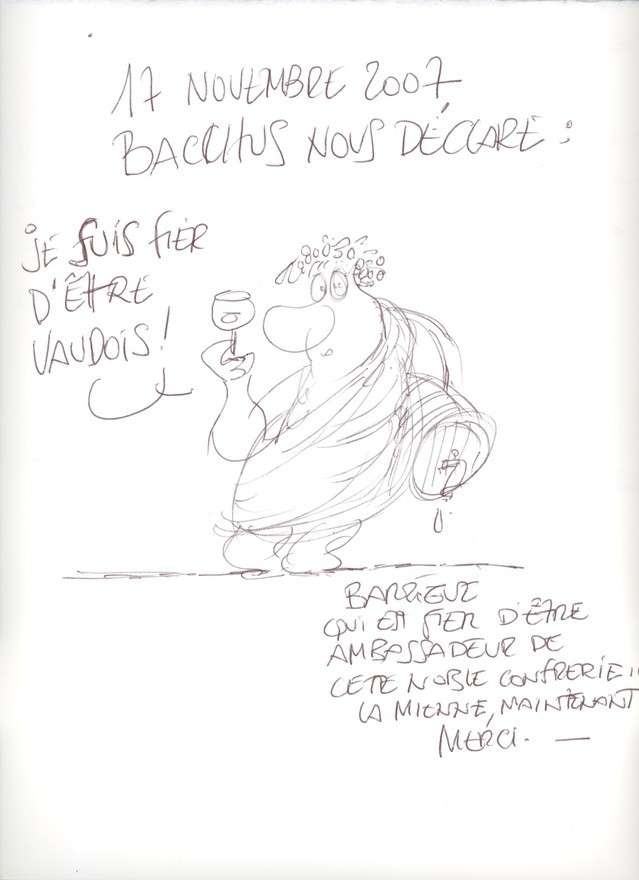 17 NOVEMBRE 2007
BACCHUS NOUS DÉCLARE :
JE SUIS FIER
D'ÊTRE
VAUDOIS !
BARRIGUE
QUI EST FIER D'ÊTRE
AMBASSADEUR DE
CETTE NOBLE CONFRERIE !!
LA MIENNE, MAINTENANT
MERCI. —